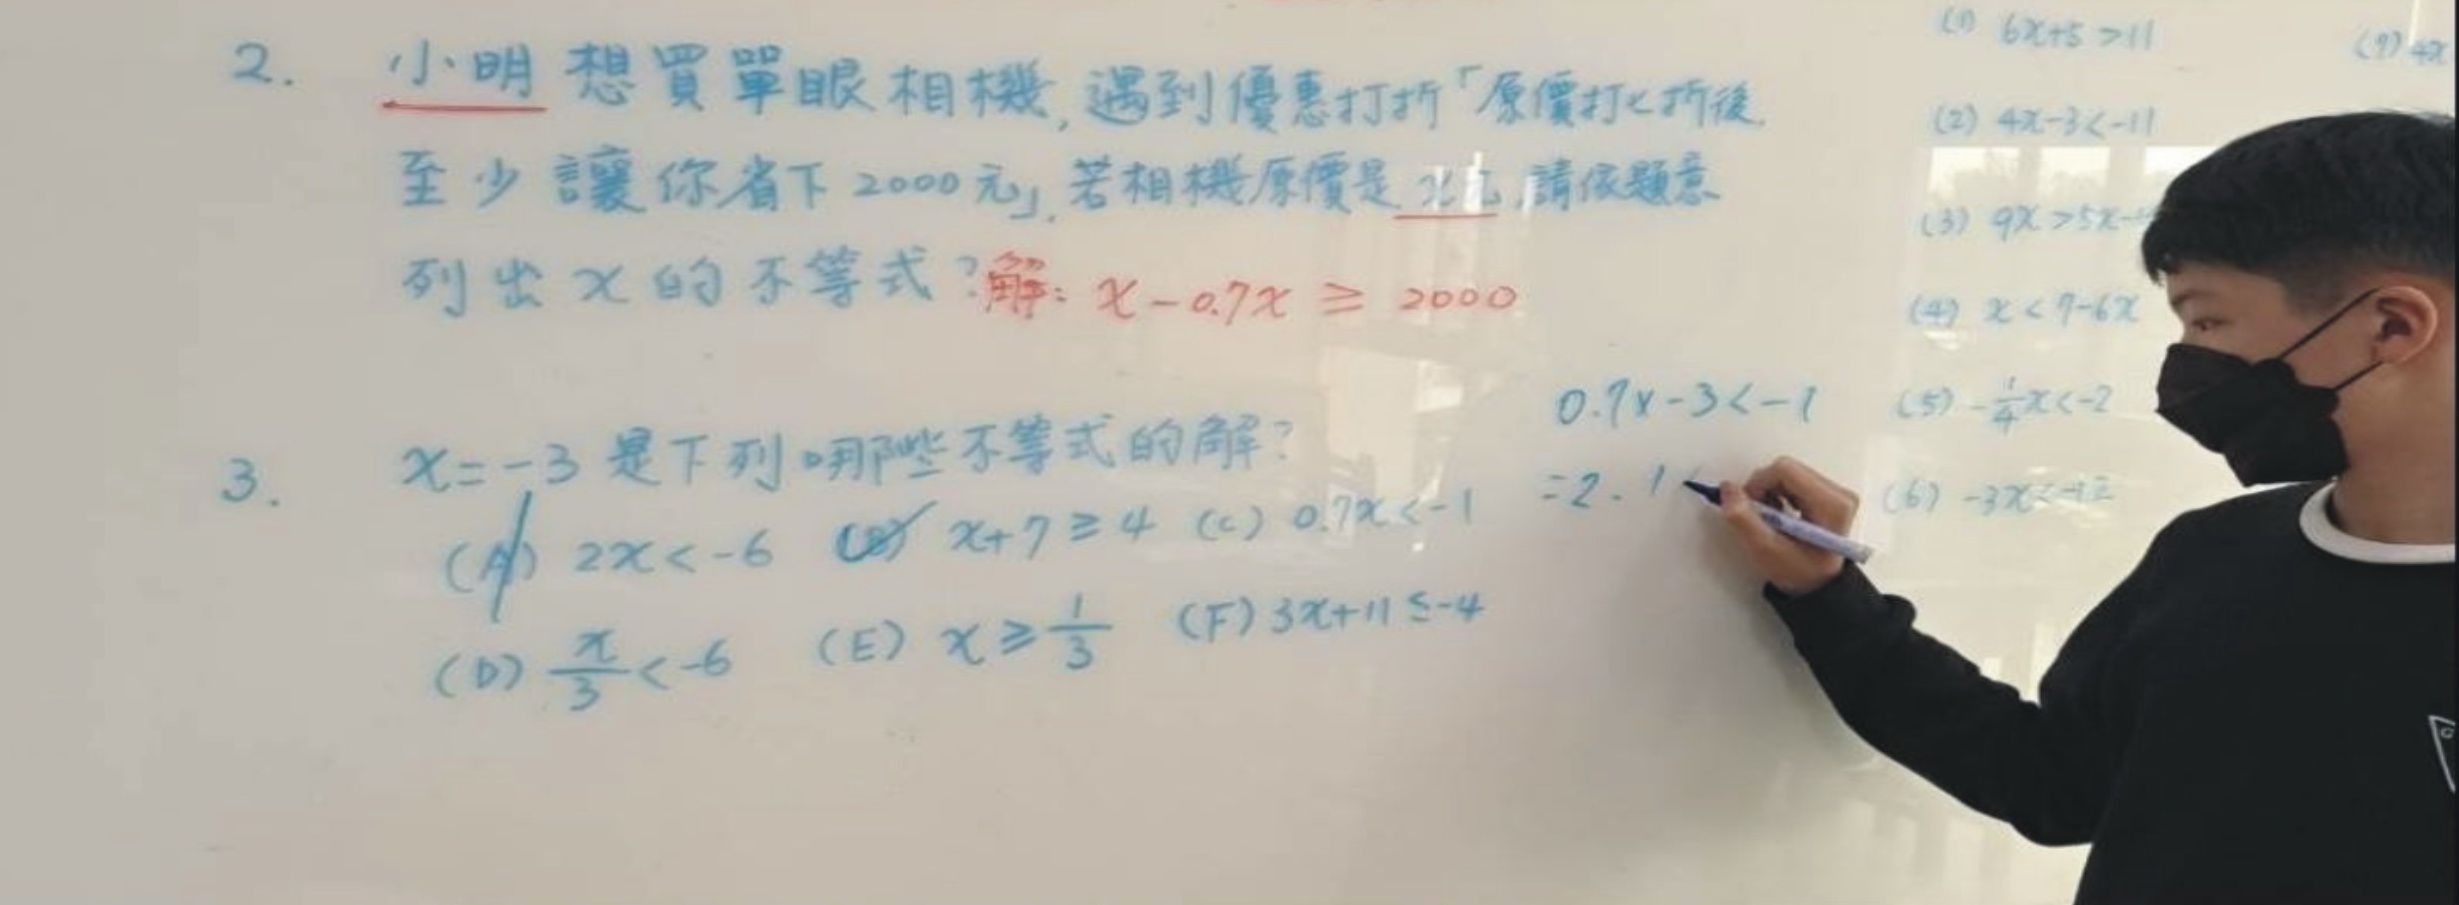 2. 小明想買單眼相機,遇到優惠打折「原價打七折後,
至少讓你省下2000元」,若相機原價是x元,請依題意
列出x的不等式?解: x-0.7x ≥ 2000
3. x=-3是下列哪些不等式的解?
(A) 2x<-6 (B) x+7≥4 (C) 0.7x<-1
(D) x/3<-6 (E) x≥1/3 (F) 3x+11≤-4
0.7x-3<-1
=2.1
(1) 6x+5>11
(2) 4x-3<-11
(3) 9x>5x-
(4) x<7-6x
(5) -1/4x<-2
(6) -3x<-12
(7) 4x